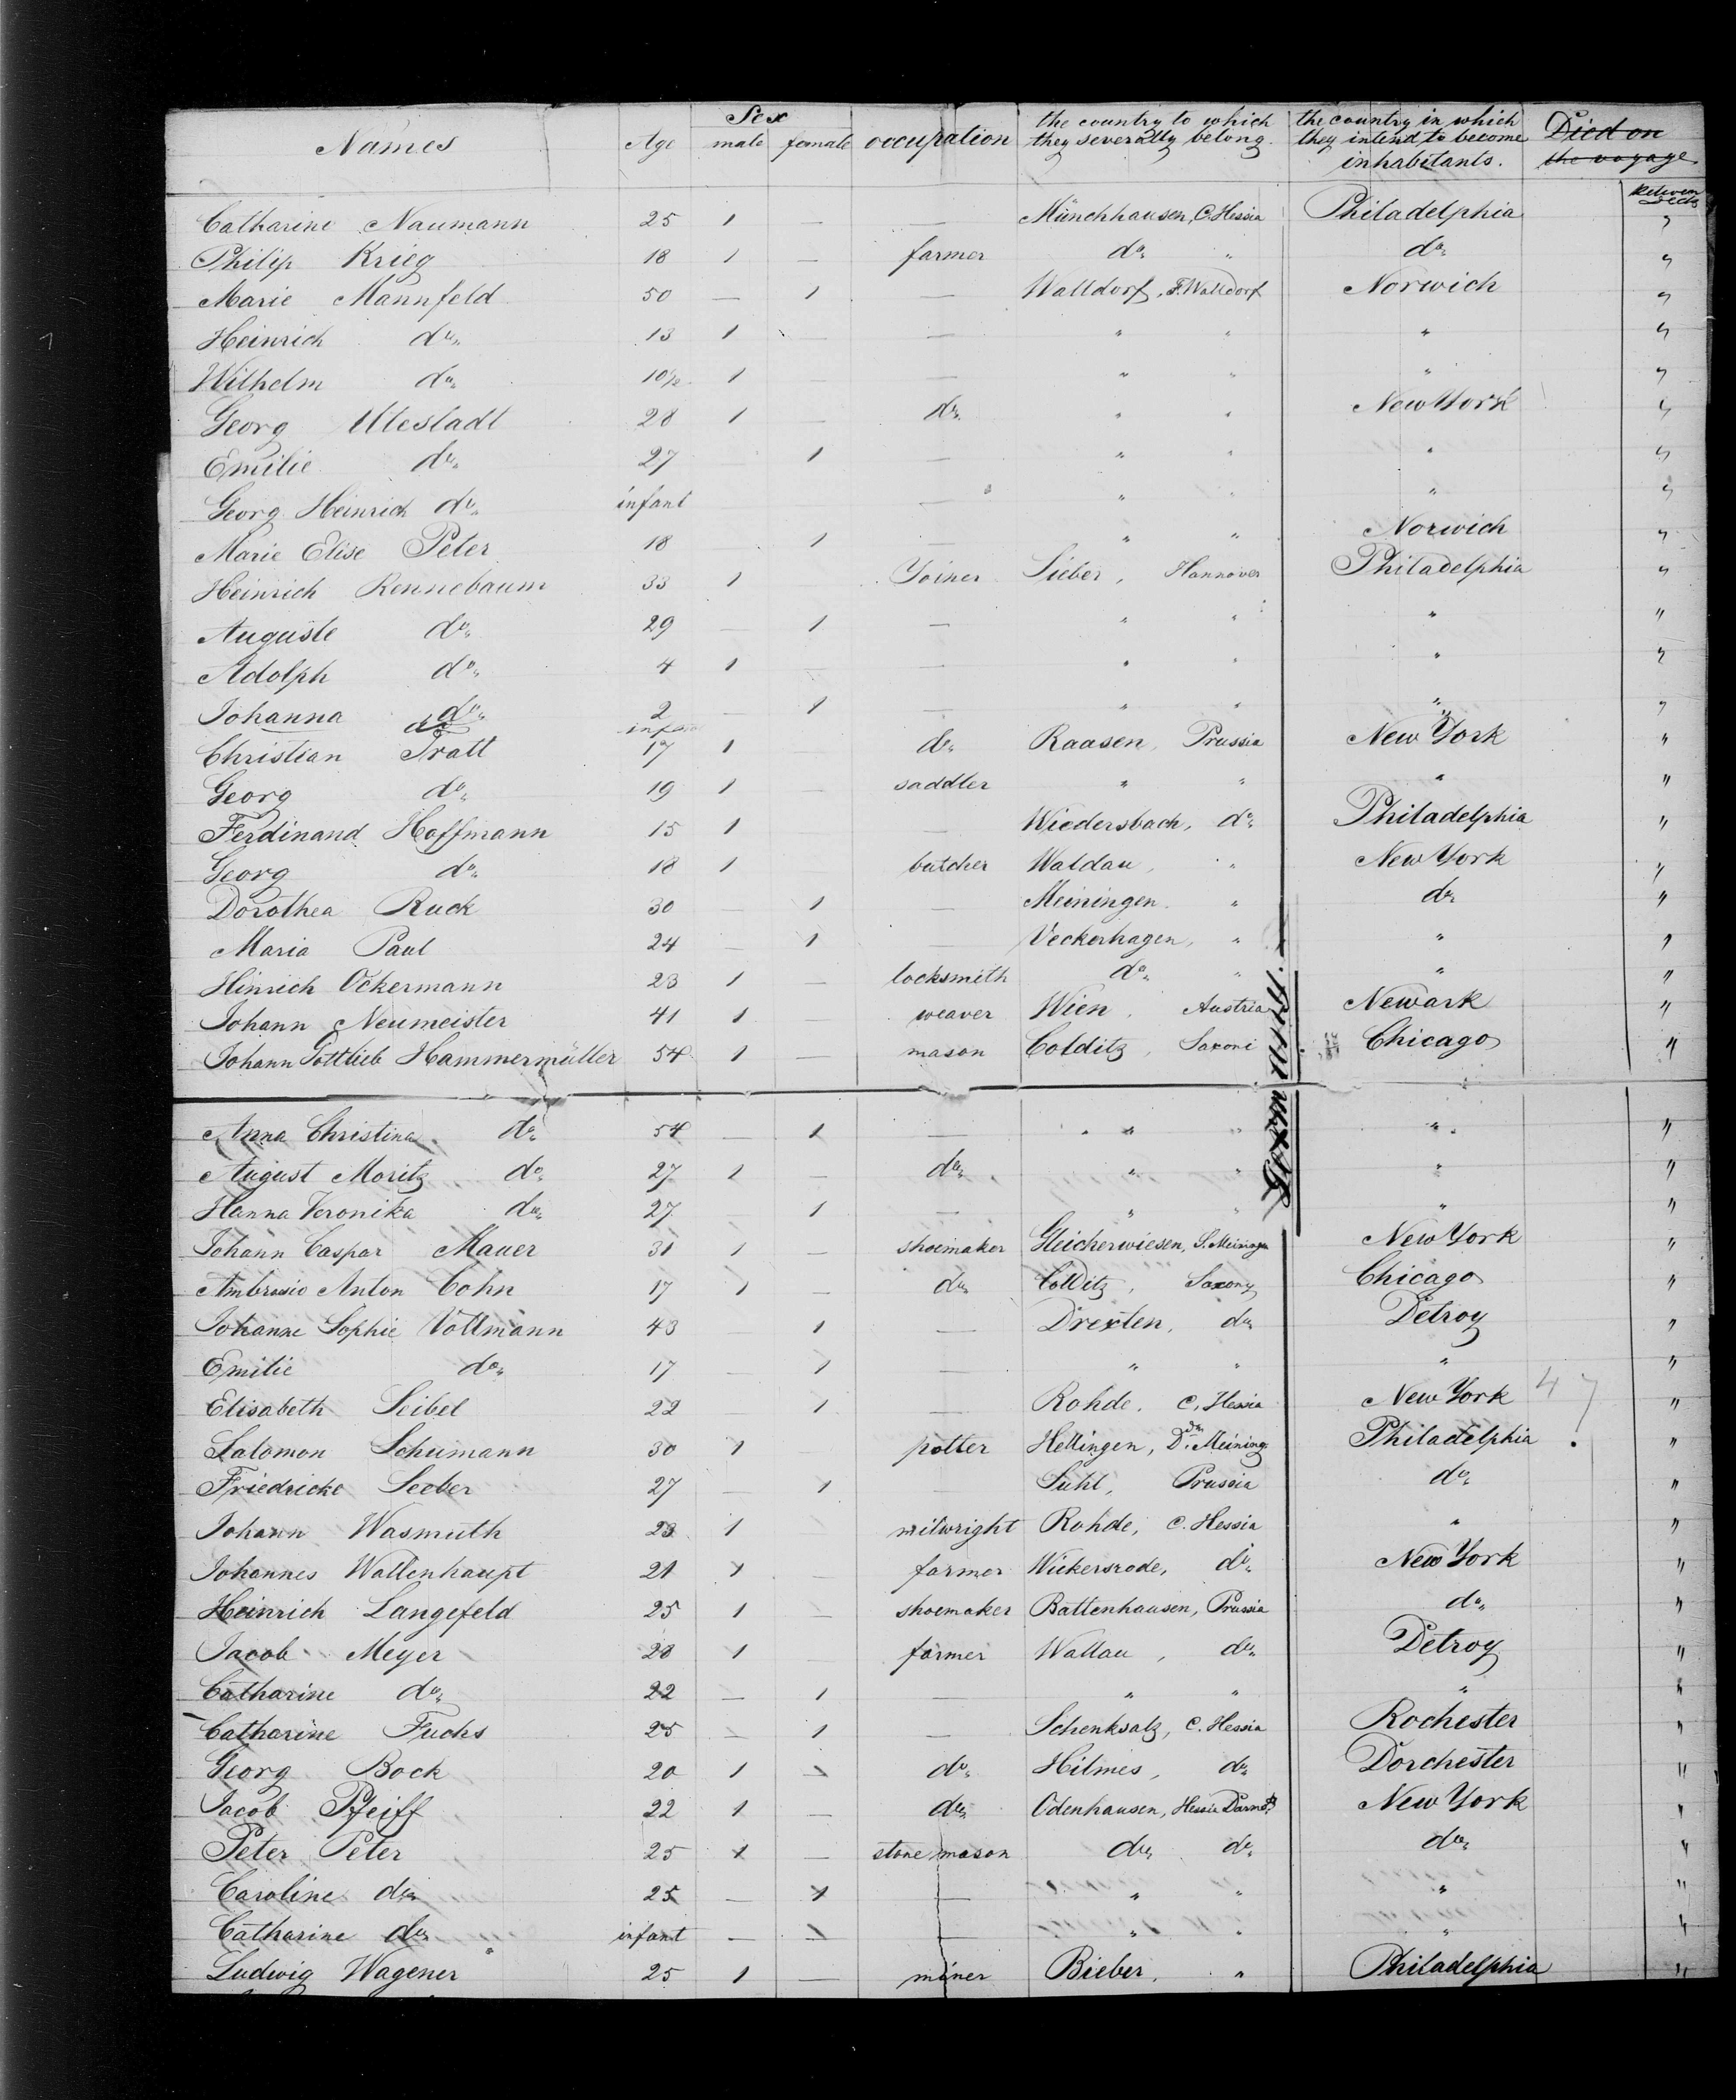 Names Age Sex male female occupation the country to which they severally belong. the country in which they intend to become inhabitants. Died on the voyage
Between Decks
Catharine Naumann 25 1 — — Münchhausen, C. Hessia Philadelphia "
Philip Krieg 18 1 — farmer do " do "
Marie Mannfeld 50 — 1 — Walldorf, F. Walldorf Norwich "
Heinrich do 13 1 — — " " " "
Wilhelm do 10½ 1 — — " " " "
Georg Utestadt 28 1 — do " " New York "
Emilie do 27 1 — " " " "
Georg Heinrich do infant — " " " "
Marie Elise Peter 18 — 1 — " " Norwich "
Heinrich Rennebaum 33 1 Joiner Sieber, Hannover Philadelphia "
Auguste do 29 — 1 — " " " "
Adolph do 4 1 — — " " " "
Johanna do 2 — 1 — " " " "
do infant "
Christian Tratt 17 1 do Raasen, Prussia New York "
Georg do 19 1 — saddler " " " "
Ferdinand Hoffmann 15 1 Wiedersbach, do Philadelphia "
Georg do 18 1 butcher Waldau, " New York "
Dorothea Ruck 30 — 1 — Meiningen " do "
Maria Paul 24 — 1 — Veckerhagen, " " "
Hinrich Ockermann 23 1 — locksmith do " " "
Johann Neumeister 41 1 weaver Wien, Austria Newark "
Johann Gottlieb Hammermüller 54 1 — mason Colditz, Saxoni Chicago "
Anna Christina do 54 — 1 — " " " "
August Moritz do 27 1 — do " " " "
Hanna Veronika do 27 — 1 — " " " "
Johann Caspar Mauer 31 1 — shoemaker Gleicherwiesen, S. Meiningn New York "
Ambrosio Anton Cohn 17 1 — do Colditz, Saxony Chicago "
Johanne Sophie Vollmann 43 1 — Drexlen, do Detroy "
Emilie do 17 — 1 — " " " "
Elisabeth Seibel 22 1 — Rohde, C. Hessia New York 47 "
Salomon Schümann 30 1 potter Hellingen, D. Meining. Philadelphia "
Friedricke Seeber 27 — 1 — Suhl, Prussia do "
Johann Wasmuth 23 1 — milwright Rohde, C. Hessia " "
Johannes Wallenhaupt 21 1 — farmer Wickersrode, do New York "
Heinrich Langefeld 25 1 — shoemaker Battenhausen, Prussia do "
Jacob Meyer 28 1 — farmer Wallau, do Detroy "
Catharine do 22 — 1 — " " " "
Catharine Fuchs 25 — 1 — Schenksalz, C. Hessia Rochester "
Georg Bock 20 1 — do Hilmes, do Dorchester "
Jacob Pfeiff 22 1 — do Odenhausen, Hessia Darmst. New York "
Peter Peter 25 1 — stone mason do do do "
Caroline do 25 — 1 — " " " "
Catharine do infant — 1 — " " " "
Ludwig Wagener 25 1 miner Bieber, " Philadelphia "